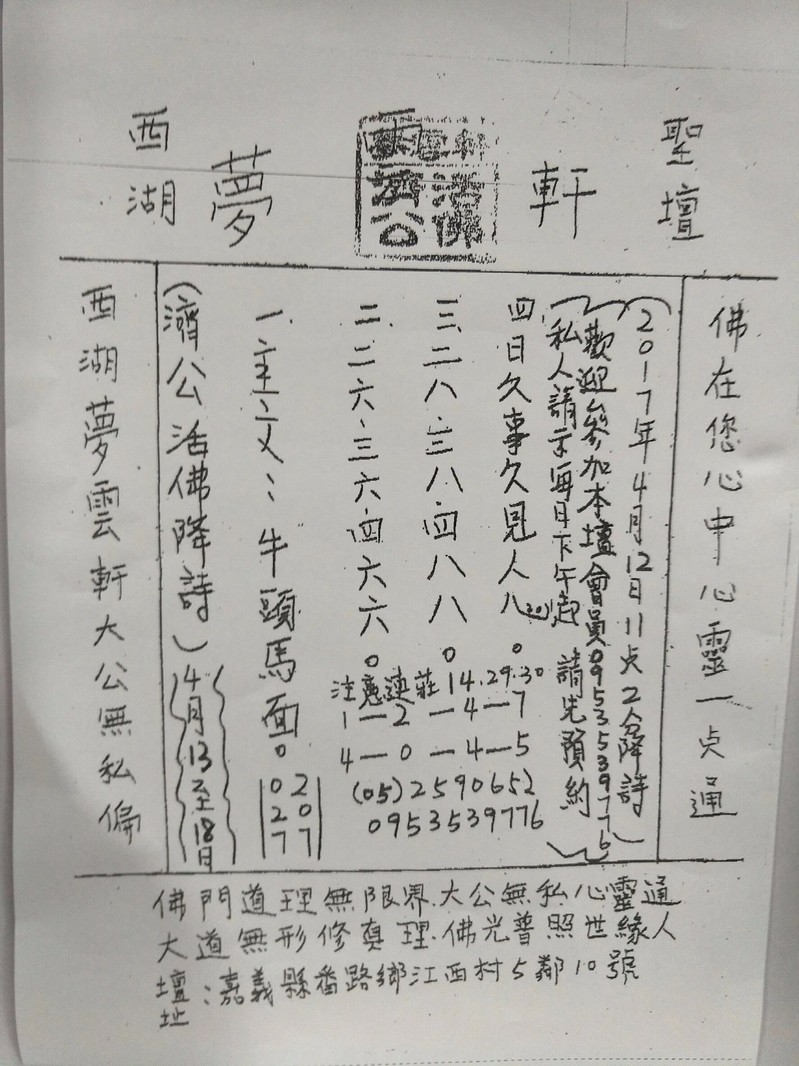 西湖夢雲軒聖壇
濟公活佛
西湖夢雲軒大公無私偏
(濟公活佛降詩)
4月13至18日
一.主文:牛頭馬面。
02
20
77
二.二六.三六.四六六。
三.二八.三八.四八八。
四日久事久見人八(20)。
注意連莊14.29.30
1—2—4—7
4—0—4—5
(05)2590652
0953539776
私人請示每日下午起 請先預約
歡迎參加本壇會員0953539776
(2017年4月12日11点2分降詩)
佛在您心中心靈一点通
佛門道理無限界.大公無私心靈通
大道無形修真理.佛光普照世緣人
壇址:嘉義縣番路鄉江西村5鄰10號